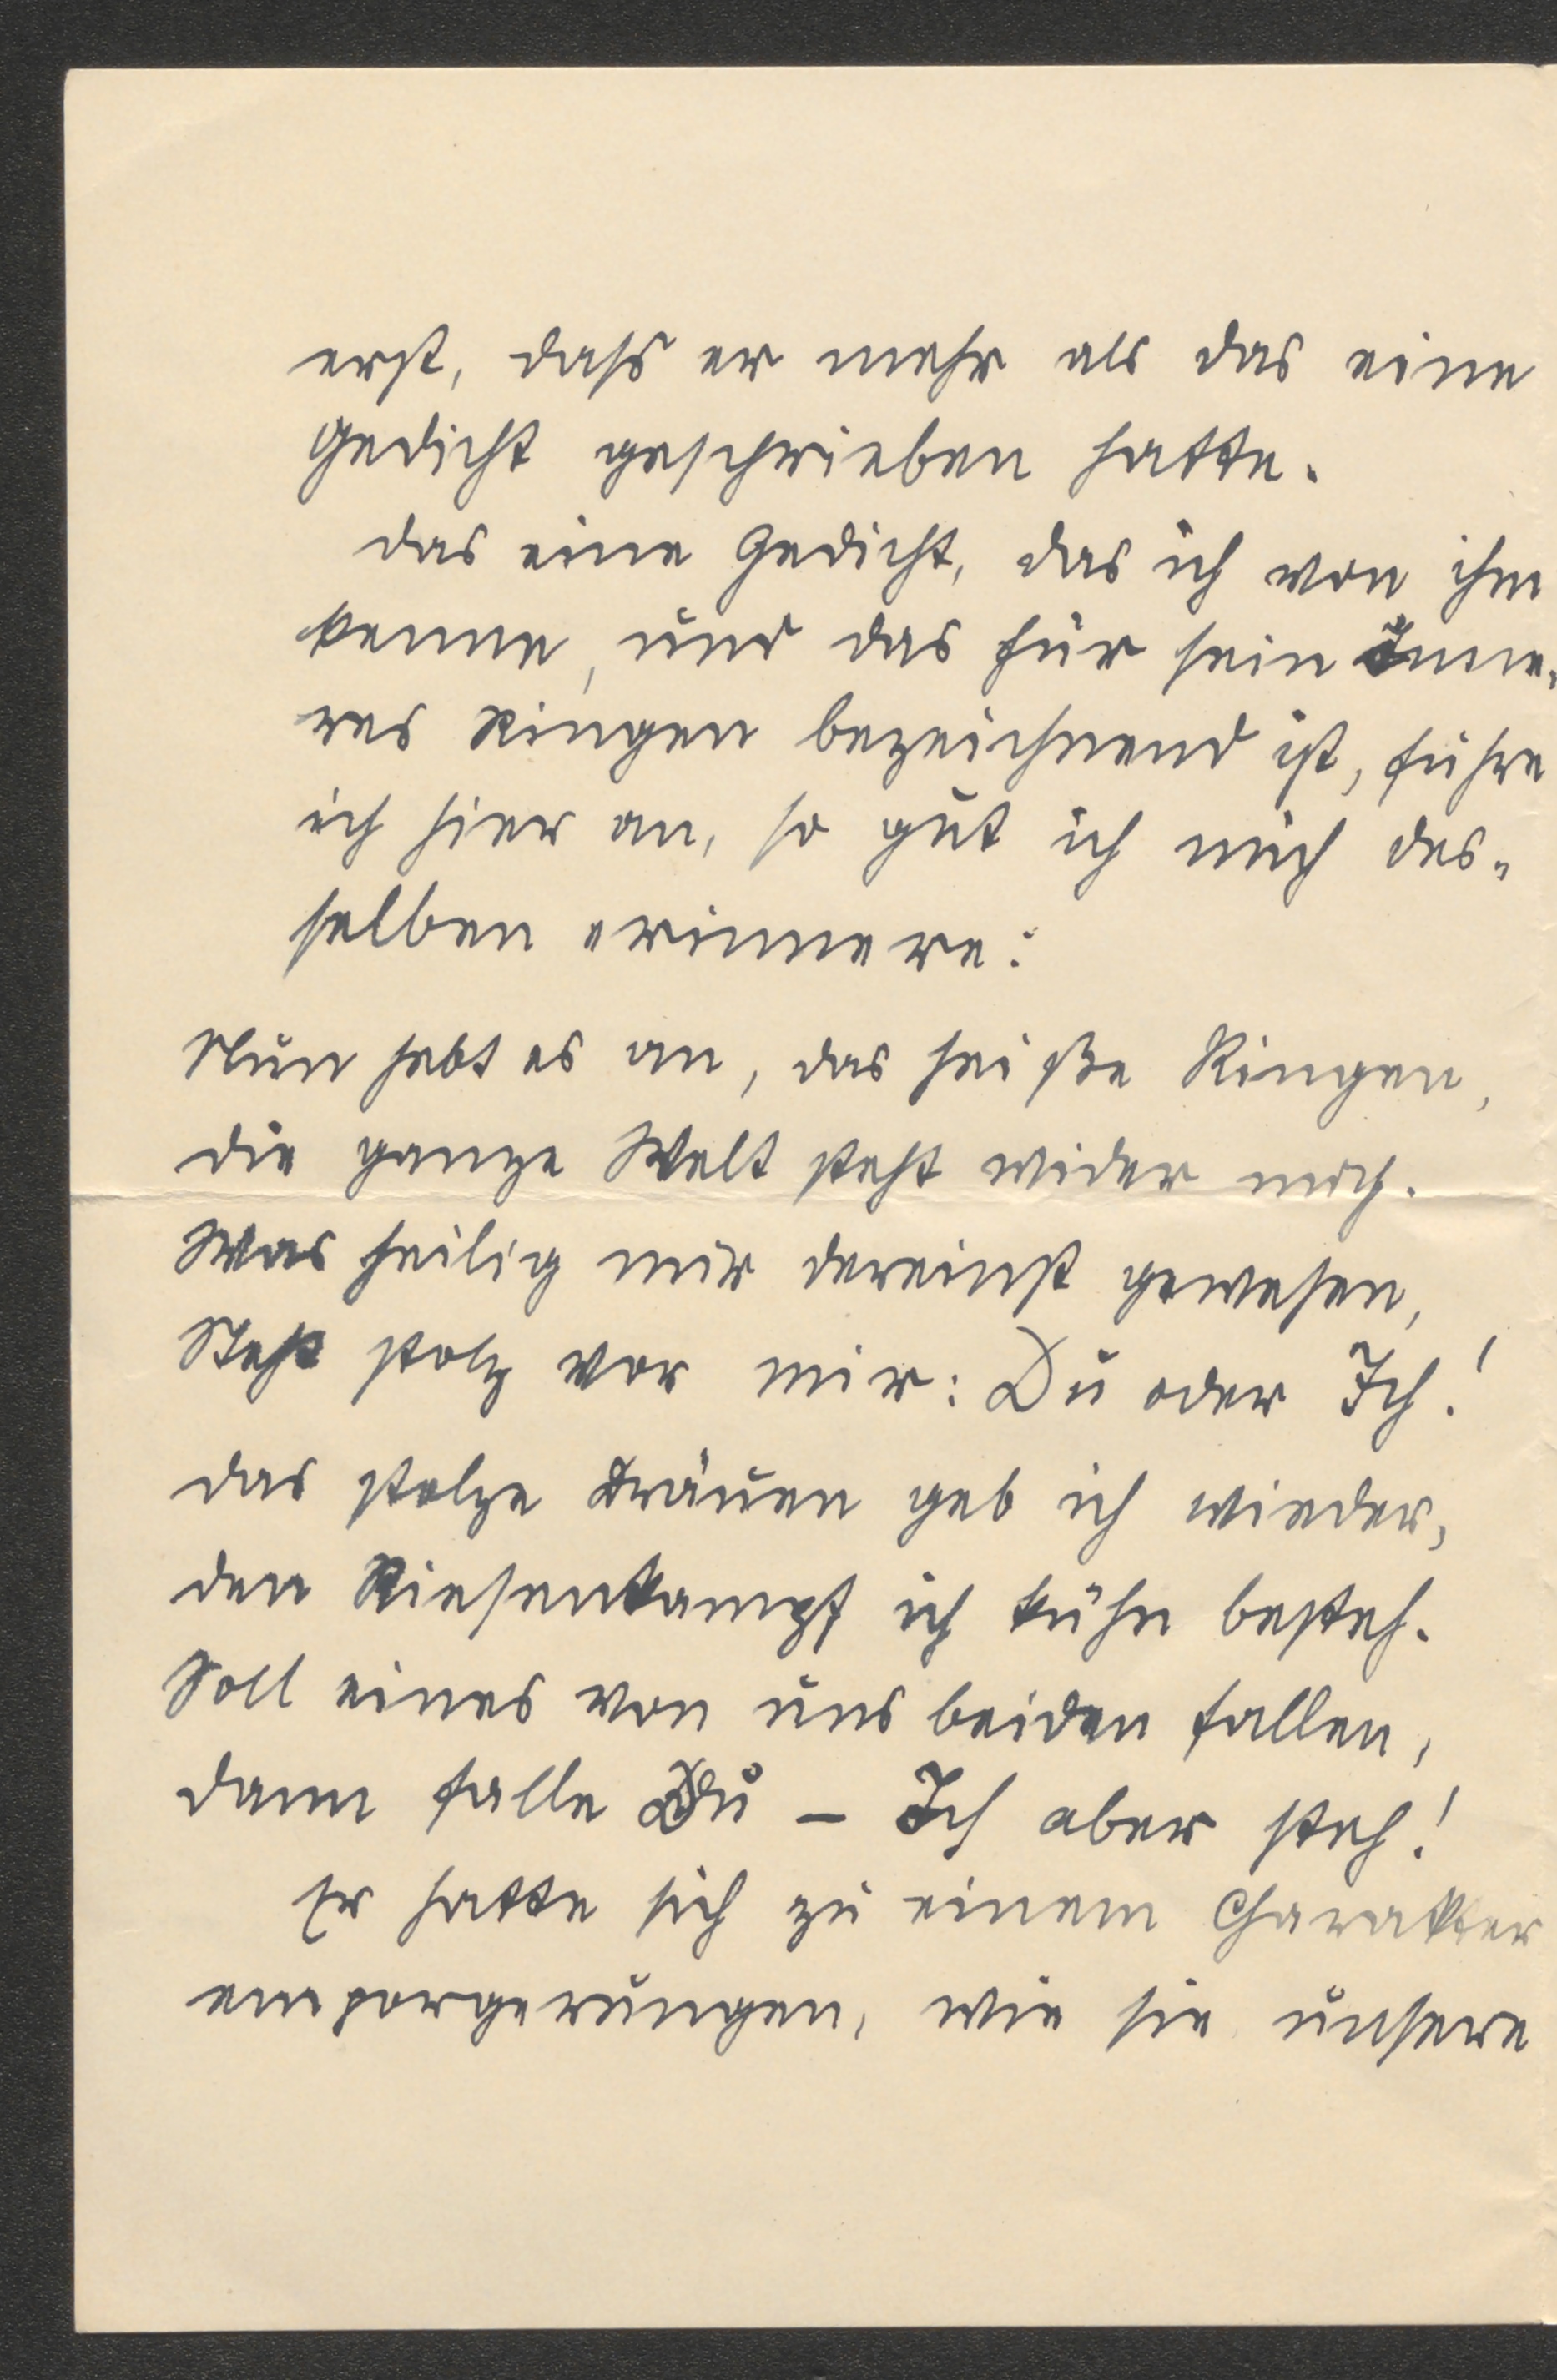 erst, dass er mehr als das eine
Gedicht geschrieben hatte.
Das eine Gedicht, das ich von ihm
kenne, und das für sein Inne-
res Ringen bezeichnend ist, führe
ich hier an, so gut ich mich des-
selben erinnere:
Nun hebt es an, das heiße Ringen,
die ganze Welt steht wider mich.
Was heilig mir dereinst gewesen,
Steht stolz vor mir: Du oder Ich!
Das stolze Dräuen geb ich wieder,
den Riesenkampf ich kühn besteh.
Soll eines von uns beiden fallen,
dann falle Du – Ich aber steh!
Er hatte sich zu einem Charakter
emporgerungen, wie sie unsere